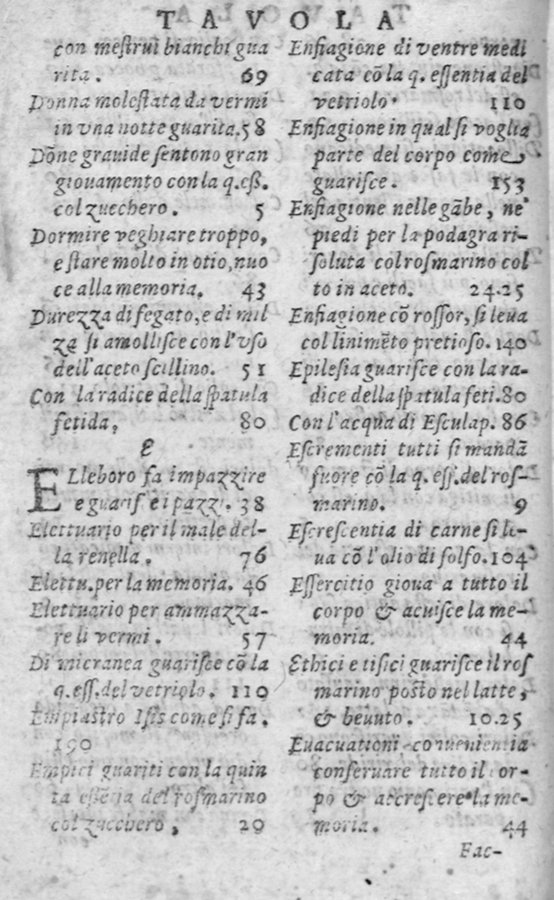 TAVOLA
con meſtrui bianchi gua
rita. 69
Donna moleſtata da vermi
in vna notte guarita. 58
Dōne grauide ſentono gran
giouamento con la q. eß.
col zucchero. 5
Dormire veghiare troppo,
e ſtare molto in otio, nuo
ce alla memoria. 43
Durezza di fegato, e di mil
za ſi amolliſce con l'vſo
dell'aceto ſcillino. 51
Con la radice della ſpatula
fetida. 80
E
ELleboro fa impazzire
e guariſ e i pazzi. 38
Elettuario per il male del-
la renella. 76
Elettu. per la memoria. 46
Elettuario per ammazza-
re li vermi. 57
Di micranea guariſce cō la
q. eſſ. del vetriolo. 110
Empiaſtro Iſis come ſi fa.
190
Empici guariti con la quin
ta eſſēcia del roſmarino
col zucchero, 29
Enfiagione di ventre medi
cata cō la q. eſſentia del
vetriolo. 110
Enfiagione in qual ſi voglia
parte del corpo come
guariſce. 153
Enfiagione nelle gābe, ne'
piedi per la podagra ri-
ſoluta col roſmarino col
to in aceto. 24.25
Enfiagione cō roſſor, ſi leua
col linimēto pretioſo. 140
Epileſia guariſce con la ra-
dice della ſpatula feti. 80
Con l'acqua di Eſculap. 86
Eſcrementi tutti ſi mandā
fuore cō la q. eſſ. del roſ-
marino. 9
Eſcreſcentia di carne ſi le-
ua cō l'olio di ſolfo. 104
Eſſercitio gioua a tutto il
corpo & acuiſce la me-
moria. 44
Ethici e tiſici guariſce il roſ
marino poſto nel latte,
& beuuto. 10.25
Euacuationi conuenientia
conſeruare tutto il cor-
po & accreſcere la me-
moria. 44
Fac-